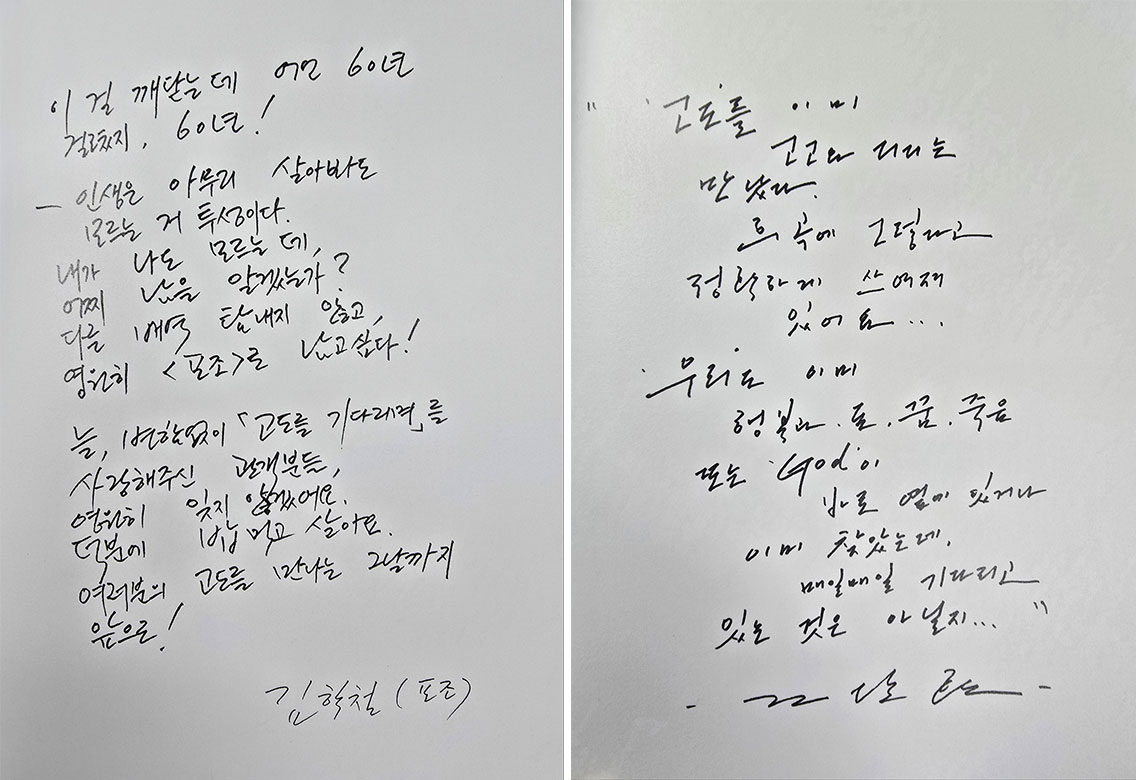 이 걸 깨닫는데 어언 60년
걸렸지, 60년!
— 인생은 아무리 살아봐도
모르는 거 투성이다.
내가 나도 모르는데,
어찌 남을 알겠는가?
다른 배역 탐내지 않고,
영원히 <포조>로 남고싶다!
늘, 변함없이 「고도를 기다리며」를
사랑해주신 관객분들,
영원히 잊지 않겠어요.
덕분에 밥 먹고 살아요.
여러분의 고도를 만나는 그날까지
앞으로!
김학철 (포조)
" '고도'를 이미
고고와 디디는
만났다.
희곡에 그렇다고
정확하게 쓰여져
있어요...
'우리'도 이미
행복과.돈.꿈.죽음
또는 'God'이
바로 옆에 있거나
이미 찾았는데,
매일매일 기다리고
있는 것은 아닐지... "